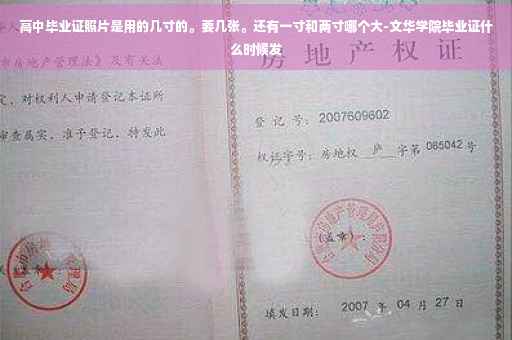 高中毕业证照片是用的几寸的。要几张。还有一寸和两寸哪个大-文华学院毕业证什
么时候发
房地产管理法》及有关法
定，对权利人申请登记本证所
审查属实，准予登记，特发此
房地产权证
登 记 号：2007609602
权证字号：房地权 庐 字第 065042 号
(盖章)：
填发日期： 2007 年 04 月 27 日